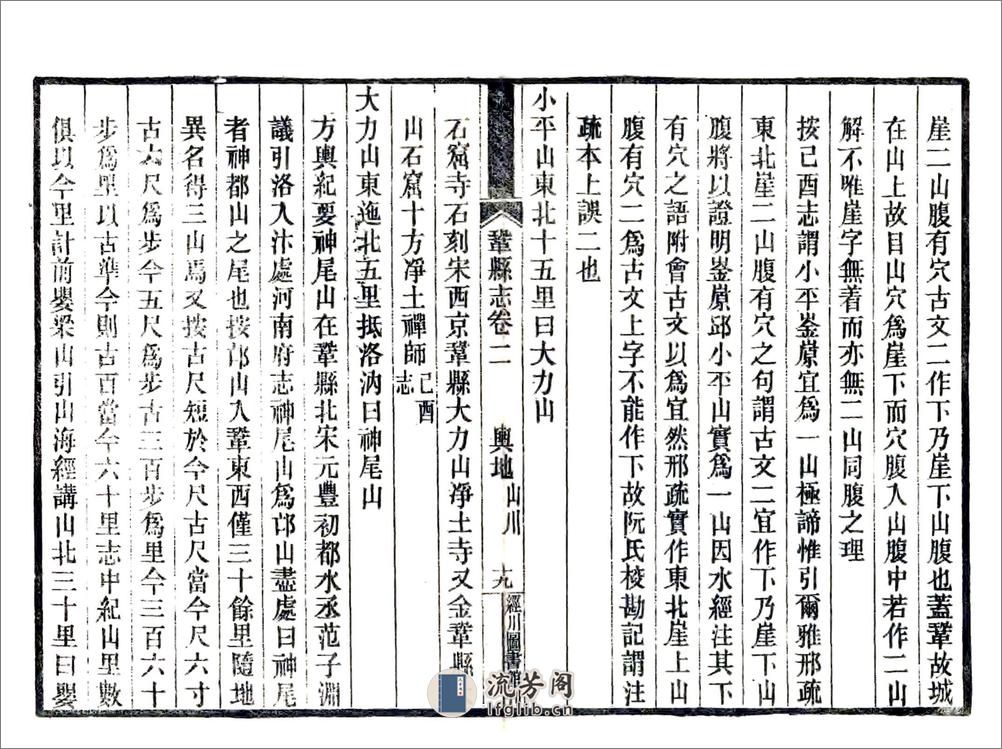 崖二山腹有穴古文二作下乃崖下山腹也蓋鞏故城
在山上故目山穴爲崖下而穴腹入山腹中若作二山
解不唯崖字無着而亦無二山同腹之理
按己酉志謂小平崟原宜爲一山極諦惟引爾雅邢疏
東北崖二山腹有穴之句謂古文二宜作下乃崖下山
腹將以證明崟原邱小平山實爲一山因水經注其下
有穴之語附會古文以爲宜然邢疏實作東北崖上山
腹有穴二爲古文上字不能作下故阮氏校勘記謂注
疏本上誤二也
小平山東北十五里曰大力山
鞏縣志卷二 輿地 山川 十九 經川圖書館
石窟寺石刻宋西京鞏縣大力山凈土寺又金鞏縣
山石窟十方凈土禪師己酉志
大力山東迤北五里抵洛汭曰神尾山
方輿紀要神尾山在鞏縣北宋元豐初都水丞范子淵
議引洛入汴處河南府志神尾山爲邙山盡處曰神尾
者神都山之尾也按邙山入鞏東西僅三十餘里隨地
異名得三山焉又按古尺短於今尺古尺當今尺六寸
古六尺爲步今五尺爲步古三百步爲里今三百六十
步爲里以古準今則古百當今六十里志中紀山里數
俱以今里計前嬰梁山引山海經講山北三十里曰嬰
流芳阁
lfglib.cn